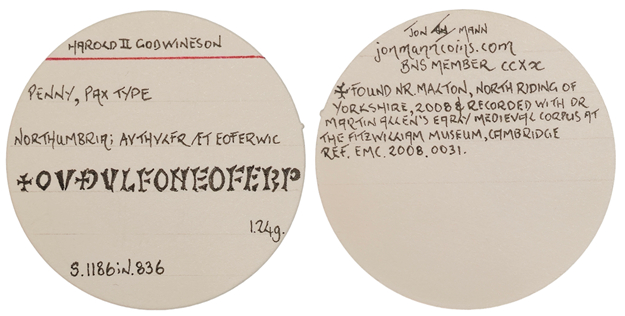 HAROLD II GODWINESON
PENNY, PAX TYPE
NORTHUMBRIA; AVTHVLFR /ÆT EOFERWIC
✠OVÐVLFONEOFERP
1.24g.
S.1186; N.836
JON MANN
jonmanncoins.com
BNS MEMBER
✠FOUND NR. MALTON, NORTH RIDING OF
YORKSHIRE, 2008 & RECORDED WITH DR
MARTIN ALLEN'S EARLY MEDIEVAL CORPUS AT
THE FITZWILLIAM MUSEUM, CAMBRIDGE
REF. EMC. 2008.0031.